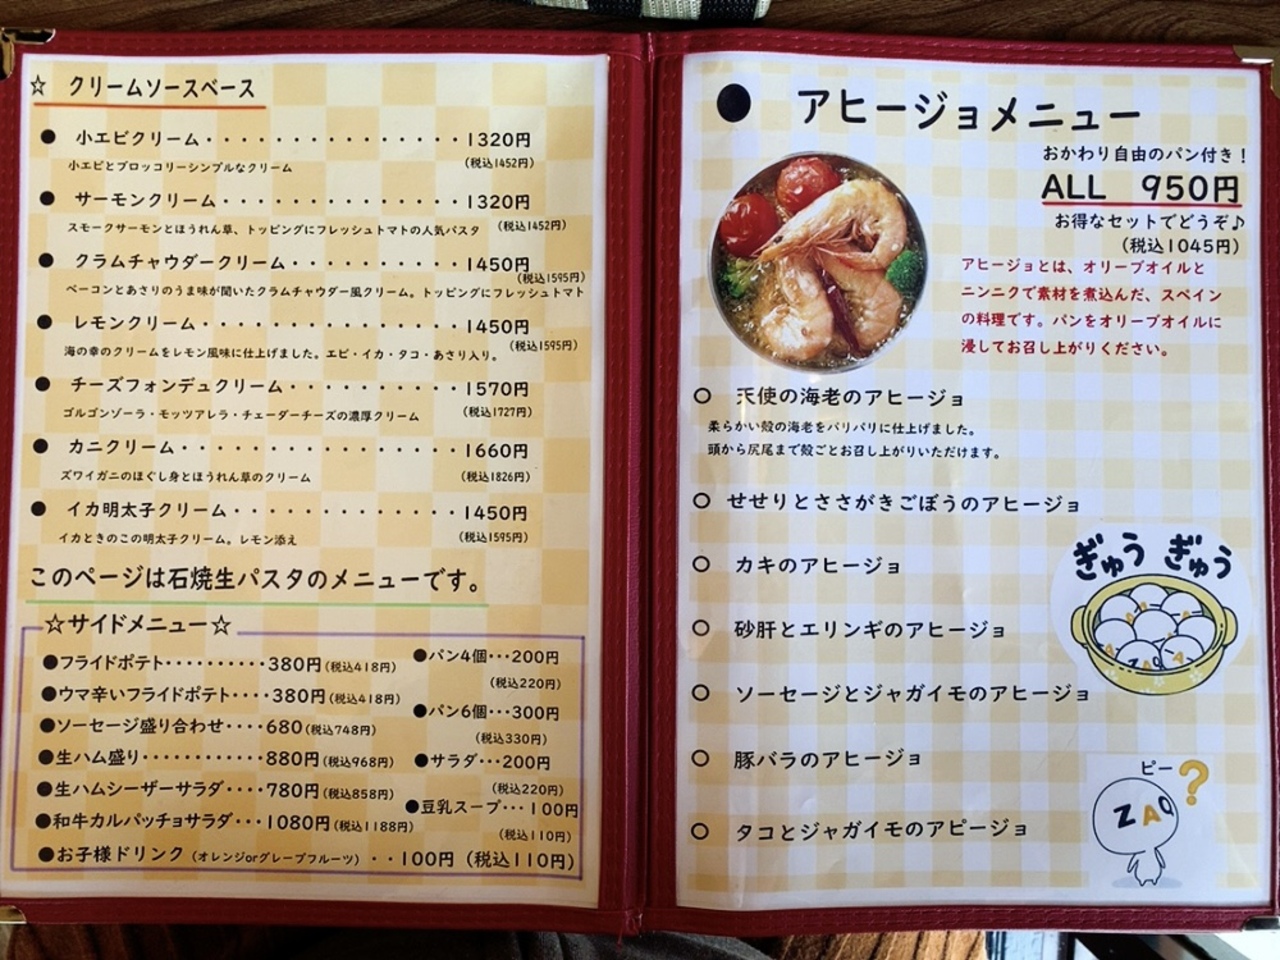 ☆ クリームソースベース
● 小エビクリーム・・・・・・・・・・・・・・・・・・1320円
小エビとブロッコリーシンプルなクリーム (税込1452円)
● サーモンクリーム・・・・・・・・・・・・・・・・・1320円
スモークサーモンとほうれん草、トッピングにフレッシュトマトの人気パスタ (税込1452円)
● クラムチャウダークリーム・・・・・・・・・・・・1450円
(税込1595円)
ベーコンとあさりのうま味が聞いたクラムチャウダー風クリーム。トッピングにフレッシュトマト
● レモンクリーム・・・・・・・・・・・・・・・・・・1450円
海の幸のクリームをレモン風味に仕上げました。エビ・イカ・タコ・あさり入り。 (税込1595円)
● チーズフォンデュクリーム・・・・・・・・・・・・1570円
ゴルゴンゾーラ・モッツアレラ・チェーダーチーズの濃厚クリーム (税込1727円)
● カニクリーム・・・・・・・・・・・・・・・・・・・・1660円
ズワイガニのほぐし身とほうれん草のクリーム (税込1826円)
● イカ明太子クリーム・・・・・・・・・・・・・・・・1450円
イカときのこの明太子クリーム。レモン添え (税込1595円)
このページは石焼生パスタのメニューです。
☆サイドメニュー☆
●フライドポテト・・・・・・・・・・380円(税込418円)
●ウマ辛いフライドポテト・・・・380円(税込418円)
●ソーセージ盛り合わせ・・・・680(税込748円)
●生ハム盛り・・・・・・・・・・・・880円(税込968円)
●生ハムシーザーサラダ・・・・780円(税込858円)
●和牛カルパッチョサラダ・・・1080円(税込1188円)
●お子様ドリンク(オレンジorグレープフルーツ)・・100円(税込110円)
●パン4個・・・200円
(税込220円)
●パン6個・・・300円
(税込330円)
●サラダ・・・200円
(税込220円)
●豆乳スープ・・・100円
(税込110円)
● アヒージョメニュー
おかわり自由のパン付き!
ALL 950円
お得なセットでどうぞ♪
(税込1045円)
アヒージョとは、オリーブオイルと
ニンニクで素材を煮込んだ、スペイン
の料理です。パンをオリーブオイルに
浸してお召し上がりください。
○ 天使の海老のアヒージョ
柔らかい殻の海老をパリパリに仕上げました。
頭から尻尾まで殻ごとお召し上がりいただけます。
○ せせりとささがきごぼうのアヒージョ
○ カキのアヒージョ
○ 砂肝とエリンギのアヒージョ
○ ソーセージとジャガイモのアヒージョ
○ 豚バラのアヒージョ
○ タコとジャガイモのアピージョ
ぎゅう ぎゅう
ZAQ
ピー?
ZAQ